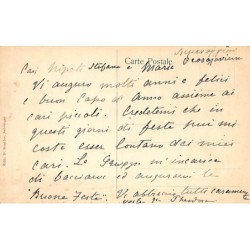 Carte Postale
Cari Nipoti Stefano e Maria
Vi auguro molti anni e felici
e buon Capo d'anno assieme ai
cari piccoli. Credetemi che in
questi giorni di feste più mi
costa esser lontano dei miei
cari. La Giuseppi m'incarica
di baciarvi ed augurarvi le
"Buone Feste". Vi abbraccio tutti caramente
vostro